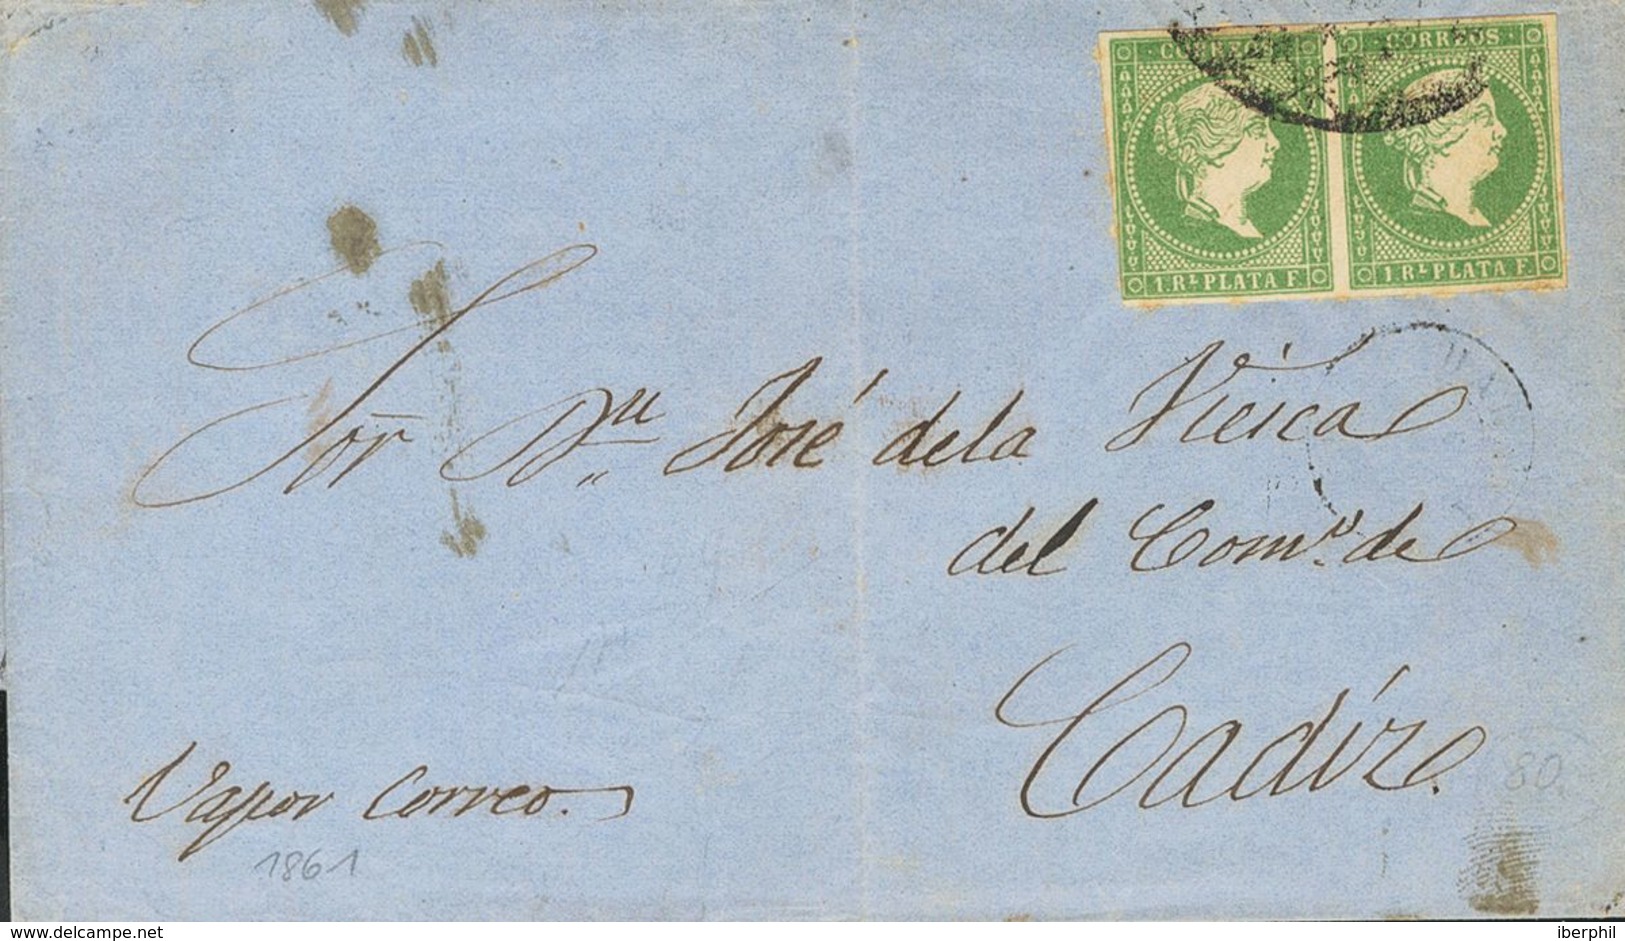 CORREOS CORREOS
1. Rˡ PLATA F. 1 Rˡ PLATA F.
Sor Dn José de la Viesca
del Comº. de
Cadíz.
80.
Vapor Correo.
1861
delcampe.net
iberphil